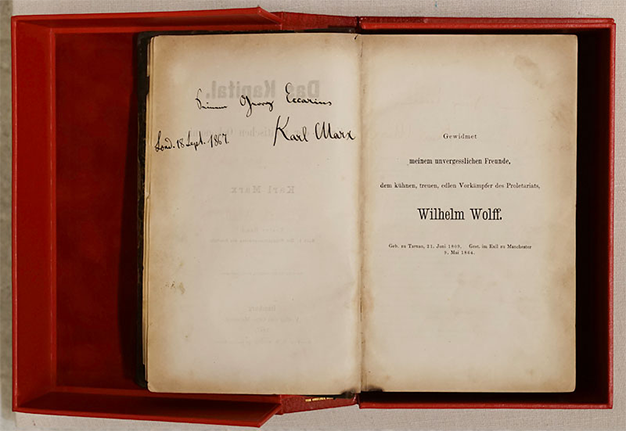 Seinem Georg Eccarius
Karl Marx
Lond. 18 Sept. 1867.
Das Kapital.
Karl Marx
Gewidmet
meinem unvergesslichen Freunde,
dem kühnen, treuen, edlen Vorkämpfer des Proletariats,
Wilhelm Wolff.
Geb. zu Tarnau, 21. Juni 1809. Gest. im Exil zu Manchester
9. Mai 1864.